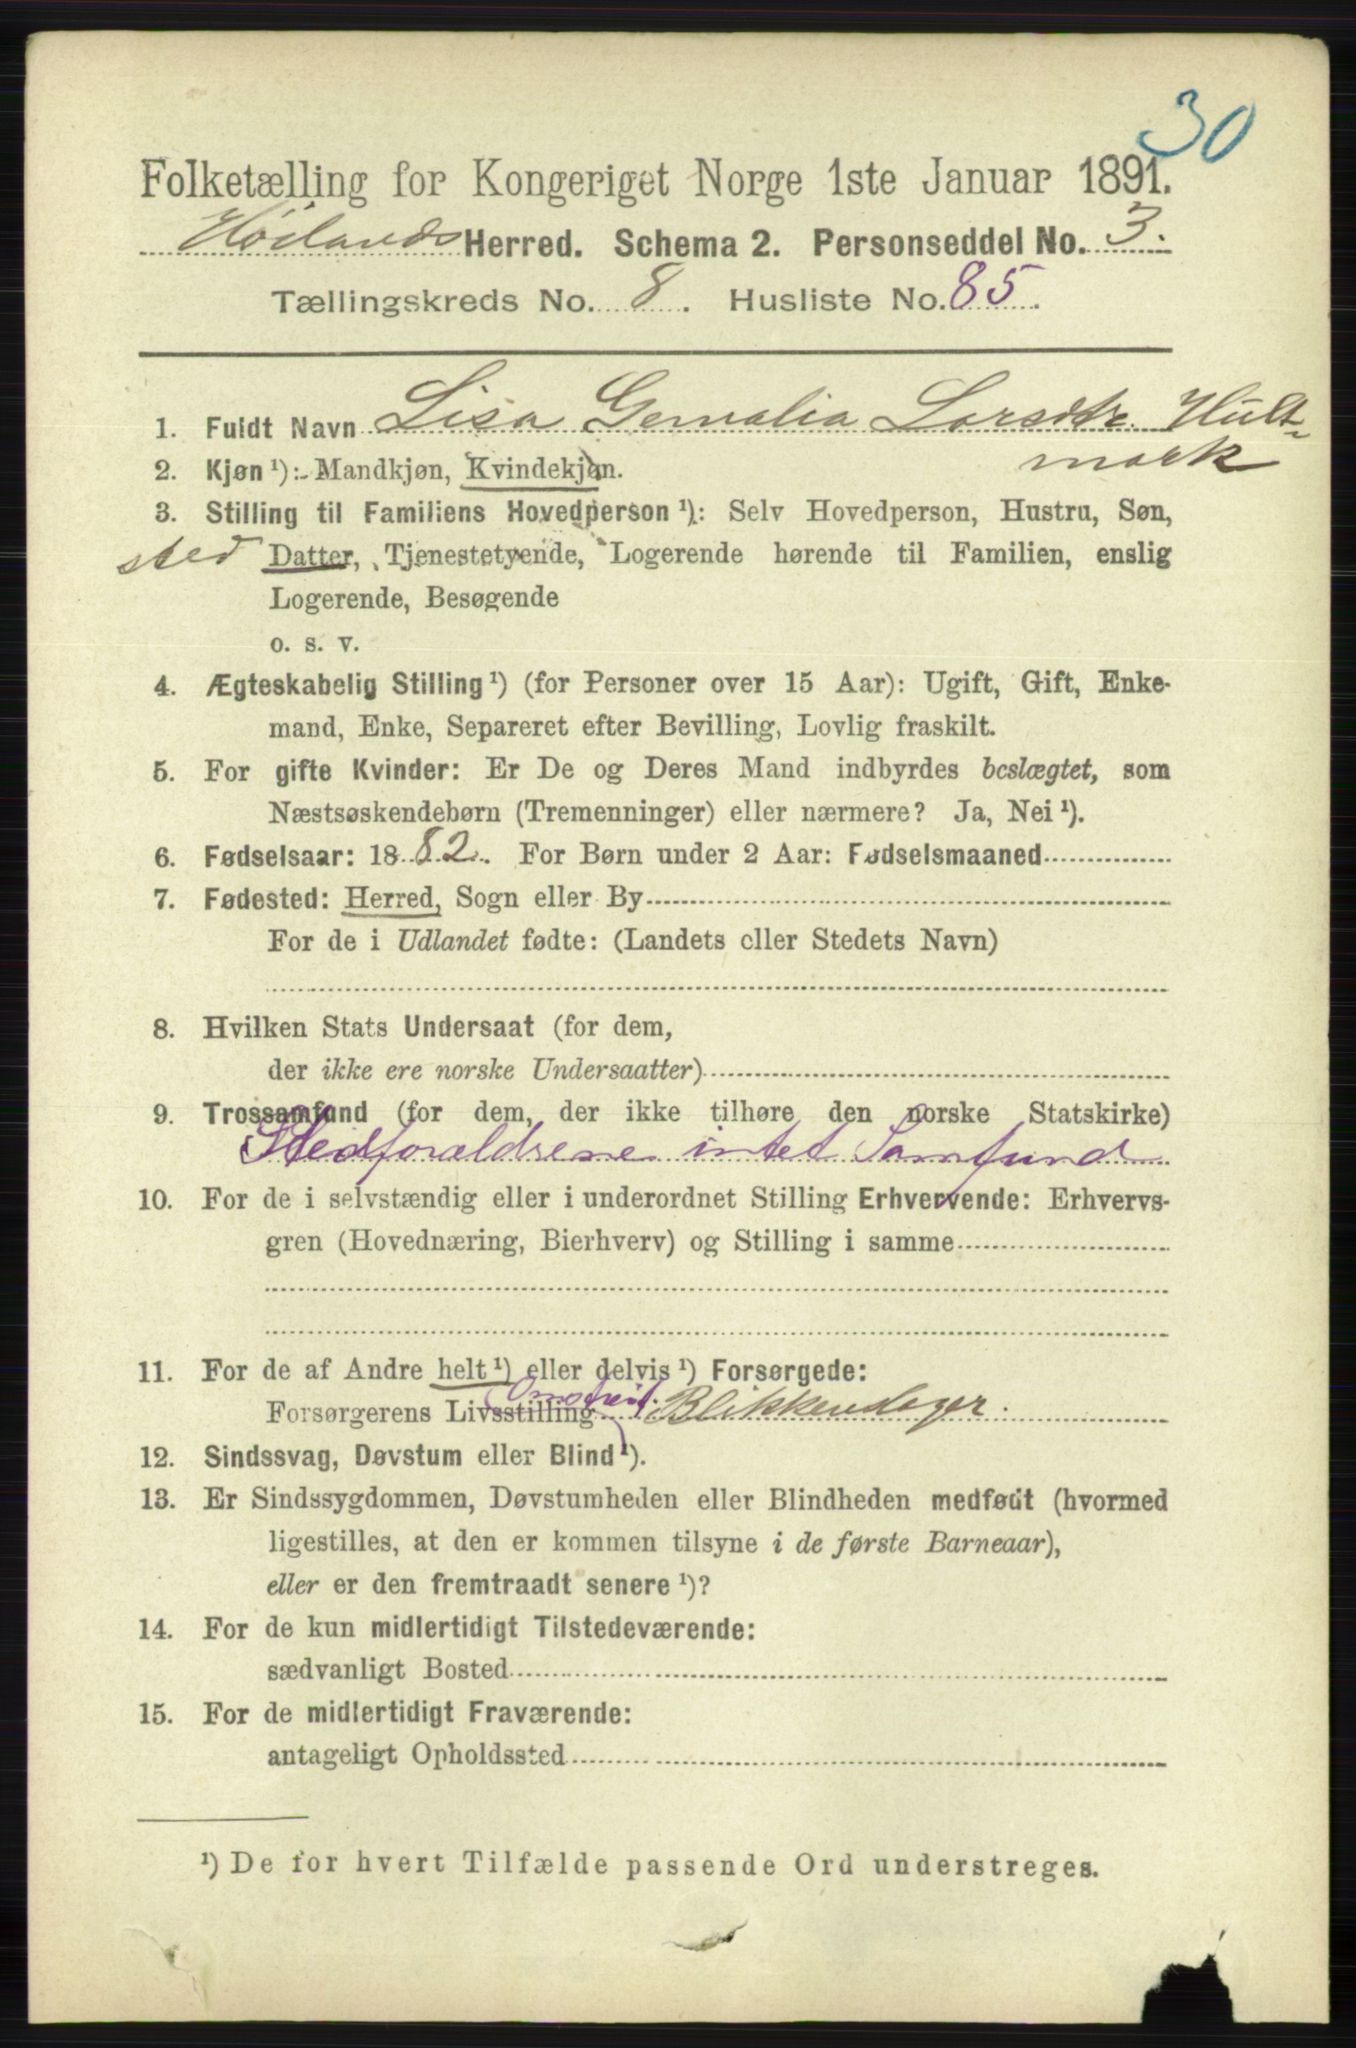 30
Folketælling for Kongeriget Norge 1ste Januar 1891.
Höilands Herred. Schema 2. Personseddel No. 3.
Tællingskreds No. 8. Husliste No. 85.
1. Fuldt Navn Lisa Larsdtr. Hult-
mark
2. Kjøn ¹): Mandkjøn, Kvindekjøn.
3. Stilling til Familiens Hovedperson ¹): Selv Hovedperson, Hustru, Søn,
sted Datter, Tjenestetyende, Logerende hørende til Familien, enslig
Logerende, Besøgende
o. s. v.
4. Ægteskabelig Stilling ¹) (for Personer over 15 Aar): Ugift, Gift, Enke-
mand, Enke, Separeret efter Bevilling, Lovlig fraskilt.
5. For gifte Kvinder: Er De og Deres Mand indbyrdes beslægtet, som
Næstsøskendebørn (Tremenninger) eller nærmere? Ja, Nei ¹).
6. Fødselsaar: 1882. For Børn under 2 Aar: Fødselsmaaned
7. Fødested: Herred, Sogn eller By
For de i Udlandet fødte: (Landets eller Stedets Navn)
8. Hvilken Stats Undersaat (for dem,
der ikke ere norske Undersaatter)
9. Trossamfund (for dem, der ikke tilhøre den norske Statskirke)
Stedforældrene intet Samfund
10. For de i selvstændig eller i underordnet Stilling Erhvervende: Erhvervs-
gren (Hovednæring, Bierhverv) og Stilling i samme
11. For de af Andre helt ¹) eller delvis ¹) Forsørgede:
Forsørgerens Livsstilling Omstreif. Blikkenslager.
12. Sindssvag, Døvstum eller Blind ¹).
13. Er Sindssygdommen, Døvstumheden eller Blindheden medfødt (hvormed
ligestilles, at den er kommen tilsyne i de første Barneaar),
eller er den fremtraadt senere ¹)?
14. For de kun midlertidigt Tilstedeværende:
sædvanligt Bosted
15. For de midlertidigt Fraværende:
antageligt Opholdssted
¹) De for hvert Tilfælde passende Ord understreges.